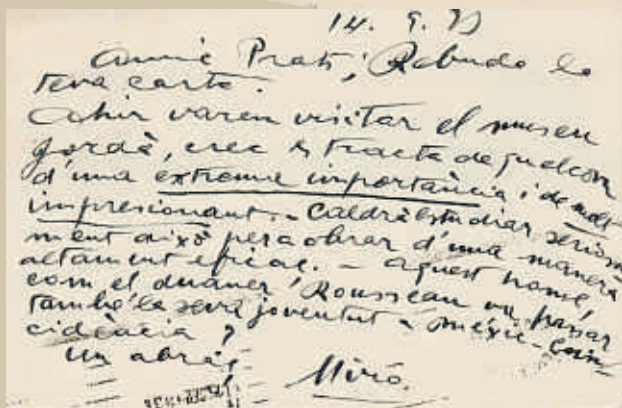 14. 9. 73
Amic Prats, Rebuda la
teva carta.
Ahir varem visitar el museu
Jordà, crec es tracta de quelcom
d'una extrema importància i de molt
impresionant. - Caldrà estudiar seriosa-
ment això per a obrar d'una manera
altament eficaç. - Aquest home,
com el duaner Rousseau va passar
també la seva joventut a Mèxic - Coin-
cidència?
Un abraç,
Miró.